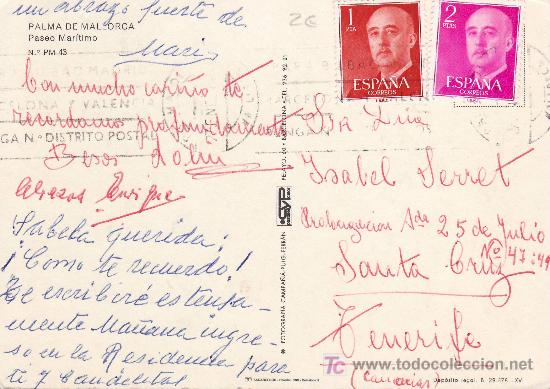 un abrazo fuerte de
Mari
PALMA DE MALLORCA
Paseo Marítimo
N.º PM-43
Con mucho cariño te
recordamos profundamente
Besos Lolin
Abrazos Enrique
¡Isabela querida!
¡Como te recuerdo!
Te escribiré extensa-
mente Mañana ingre-
so en la Residencia para
ti y
VALENCIA
DISTRITO POSTAL
2€
1
PTA
ESPAÑA
CORREOS
2
PTAS
ESPAÑA
CORREOS
Srta
Isabel Serret
Prolongacion Avda 25 de Julio
Nº 47-49
Santa Cruz
Tenerife
(Canarias)
FOTOGRAFIA CAMPAÑA-PUIG-FERRAN
Depósito legal: B. 29.676 - XV
todocoleccion
todocoleccion.net